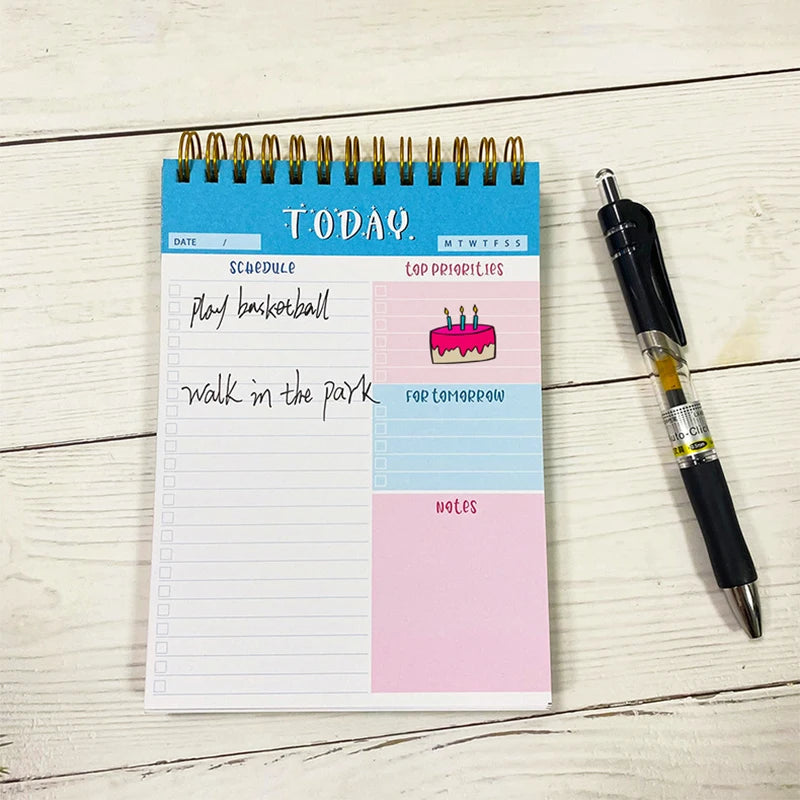 TODAY.
DATE /
M T W T F S S
SCHEDULE
play basketball
walk in the park
TOP PRIORITIES
FOR TOMORROW
NOTES
uto-Clic